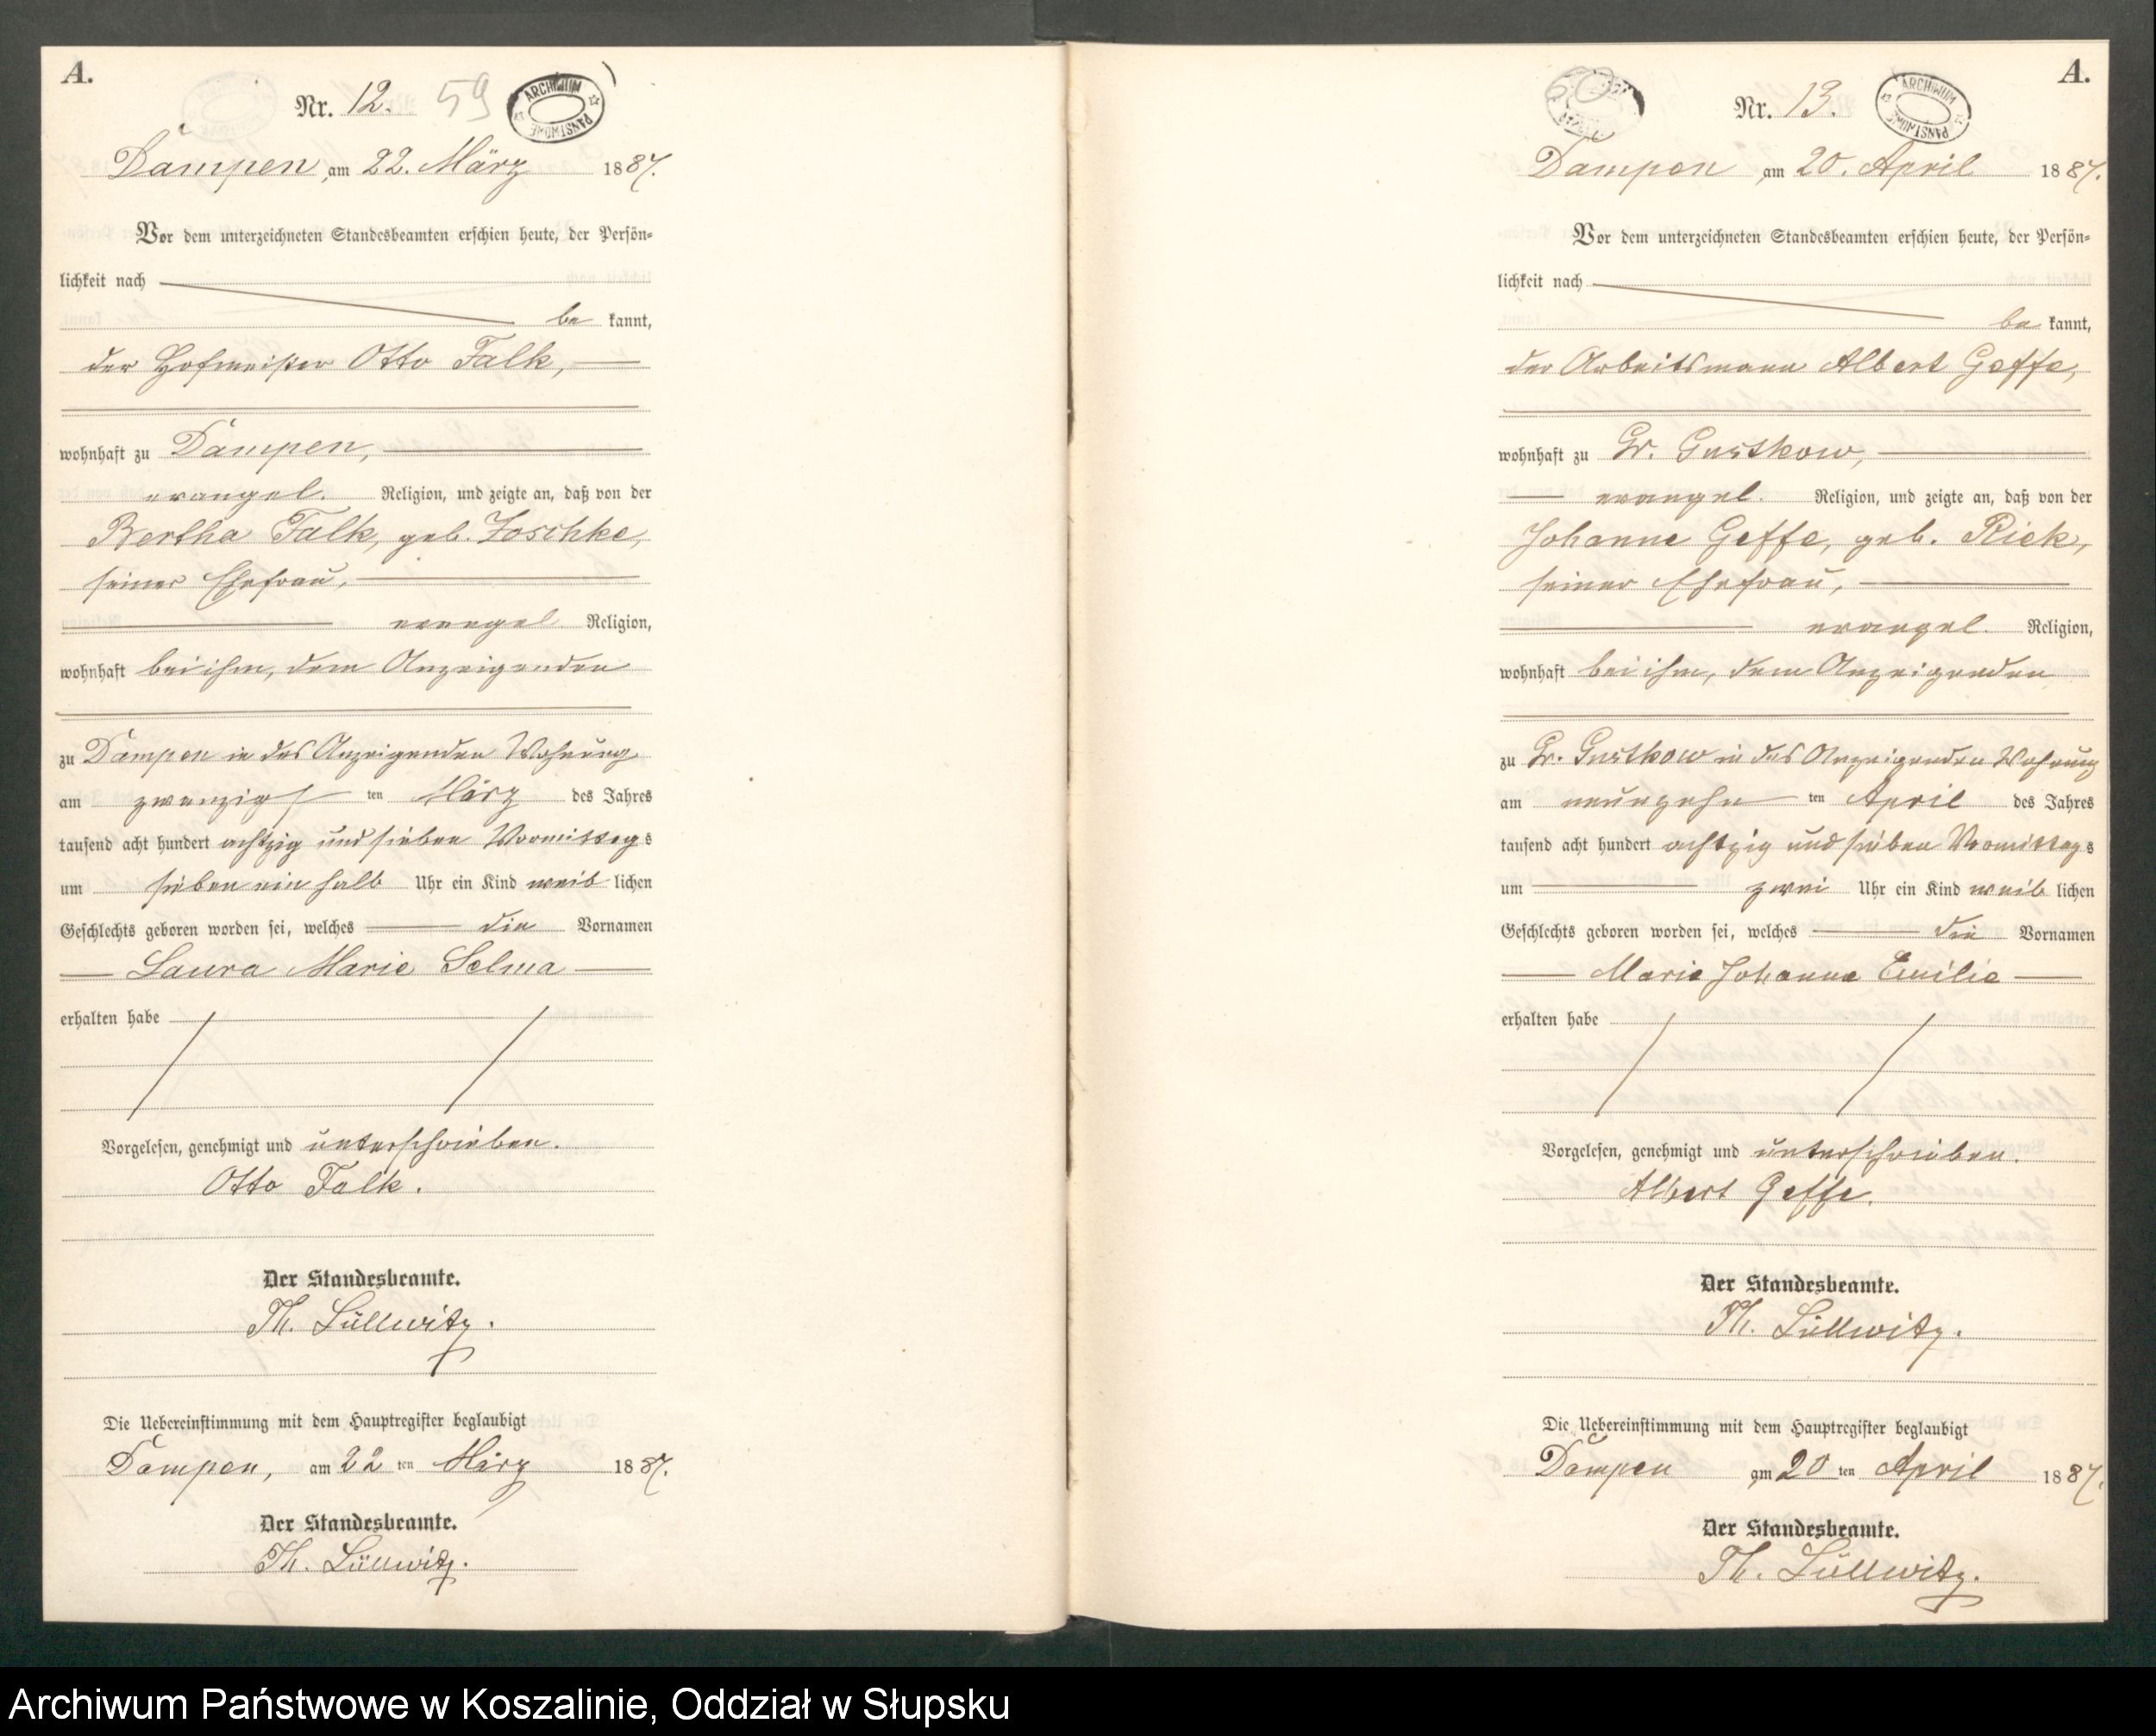 A.
Nr. 12. 59
ARCHIWUM PAŃSTWOWE
Dampen, am 22. März 1887.
Vor dem unterzeichneten Standesbeamten erschien heute, der Persön=
lichkeit nach
be kannt,
der Hofmeister Otto Falk,
wohnhaft zu Dampen,
evangel. Religion, und zeigte an, daß von der
Bertha Falk, geb. Joschke,
seiner Ehefrau,
evangel Religion,
wohnhaft bei ihm, dem Anzeigenden
zu Dampen in des Anzeigenden Wohnung
am zwanzigsten März des Jahres
tausend acht hundert achtzig und sieben Vormittags
um sieben ein halb Uhr ein Kind weiblichen
Geschlechts geboren worden sei, welches die Vornamen
Laura Marie Selma
erhalten habe
Vorgelesen, genehmigt und unterschrieben.
Otto Falk.
Der Standesbeamte.
Th. Lüllwitz.
Die Uebereinstimmung mit dem Hauptregister beglaubigt
Dampen, am 22 ten März 1887.
Der Standesbeamte.
Th. Lüllwitz.
A.
60 Nr. 13.
ARCHIWUM PAŃSTWOWE
Dampen am 20. April 1887.
Vor dem unterzeichneten Standesbeamten erschien heute, der Persön=
lichkeit nach
be kannt,
der Arbeitsmann Albert Geffe,
wohnhaft zu Gr. Gustkow,
evangel. Religion, und zeigte an, daß von der
Johanne Geffe, geb. Riek,
seiner Ehefrau,
evangel. Religion,
wohnhaft bei ihm, dem Anzeigenden
zu Gr. Gustkow in des Anzeigenden Wohnung
am neunzehn ten April des Jahres
tausend acht hundert achtzig und sieben Vormittags
um zwei Uhr ein Kind weiblichen
Geschlechts geboren worden sei, welches die Vornamen
Marie Johanne Emilie
erhalten habe
Vorgelesen, genehmigt und unterschrieben.
Albert Geffe.
Der Standesbeamte.
Th. Lüllwitz.
Die Uebereinstimmung mit dem Hauptregister beglaubigt
Dampen am 20 ten April 1887.
Der Standesbeamte.
Th. Lüllwitz.
Archiwum Państwowe w Koszalinie, Oddział w Słupsku